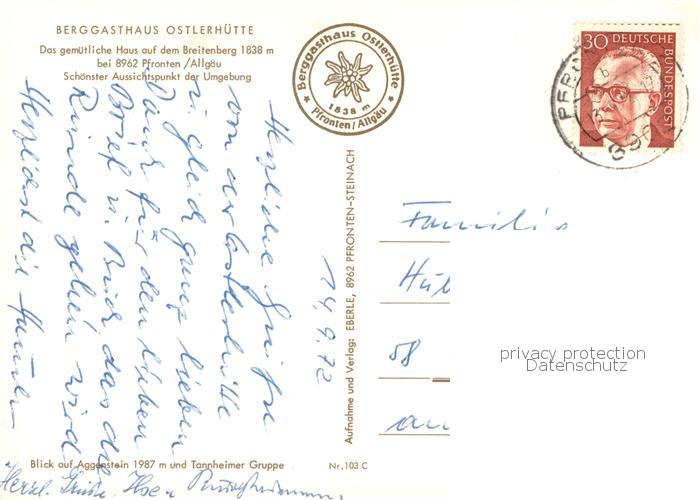 BERGGASTHAUS OSTLERHÜTTE
Das gemütliche Haus auf dem Breitenberg 1838 m
bei 8962 Pfronten /Allgäu
Schönster Aussichtspunkt der Umgebung
Berggasthaus Ostlerhütte
1838 m
Pfronten/Allgäu
30 DEUTSCHE
BUNDESPOST
14.9.72
Herzliche Grüße
von der Ostlerhütte
u. gleich ganz lieben
Dank für den lieben
Brief u. Bild, das die
Runde gehen wird
Herzlichst die
Aufnahme und Verlag: EBERLE, 8962 PFRONTEN-STEINACH
Familie
58
privacy protection
Datenschutz
Blick auf Aggenstein 1987 m und Tannheimer Gruppe
Nr. 103 C
Herzl. Grüße, Ilse